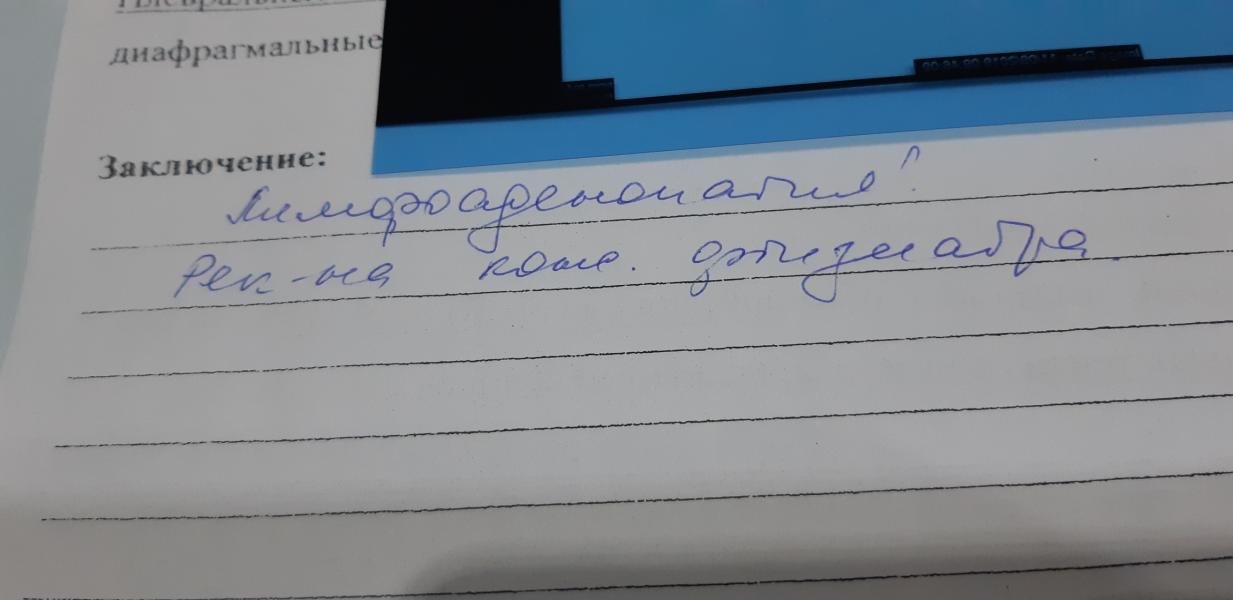 диафрагмальные
Заключение:
Лимфоаденопатия!
Рек-на конс. фтизиатра.